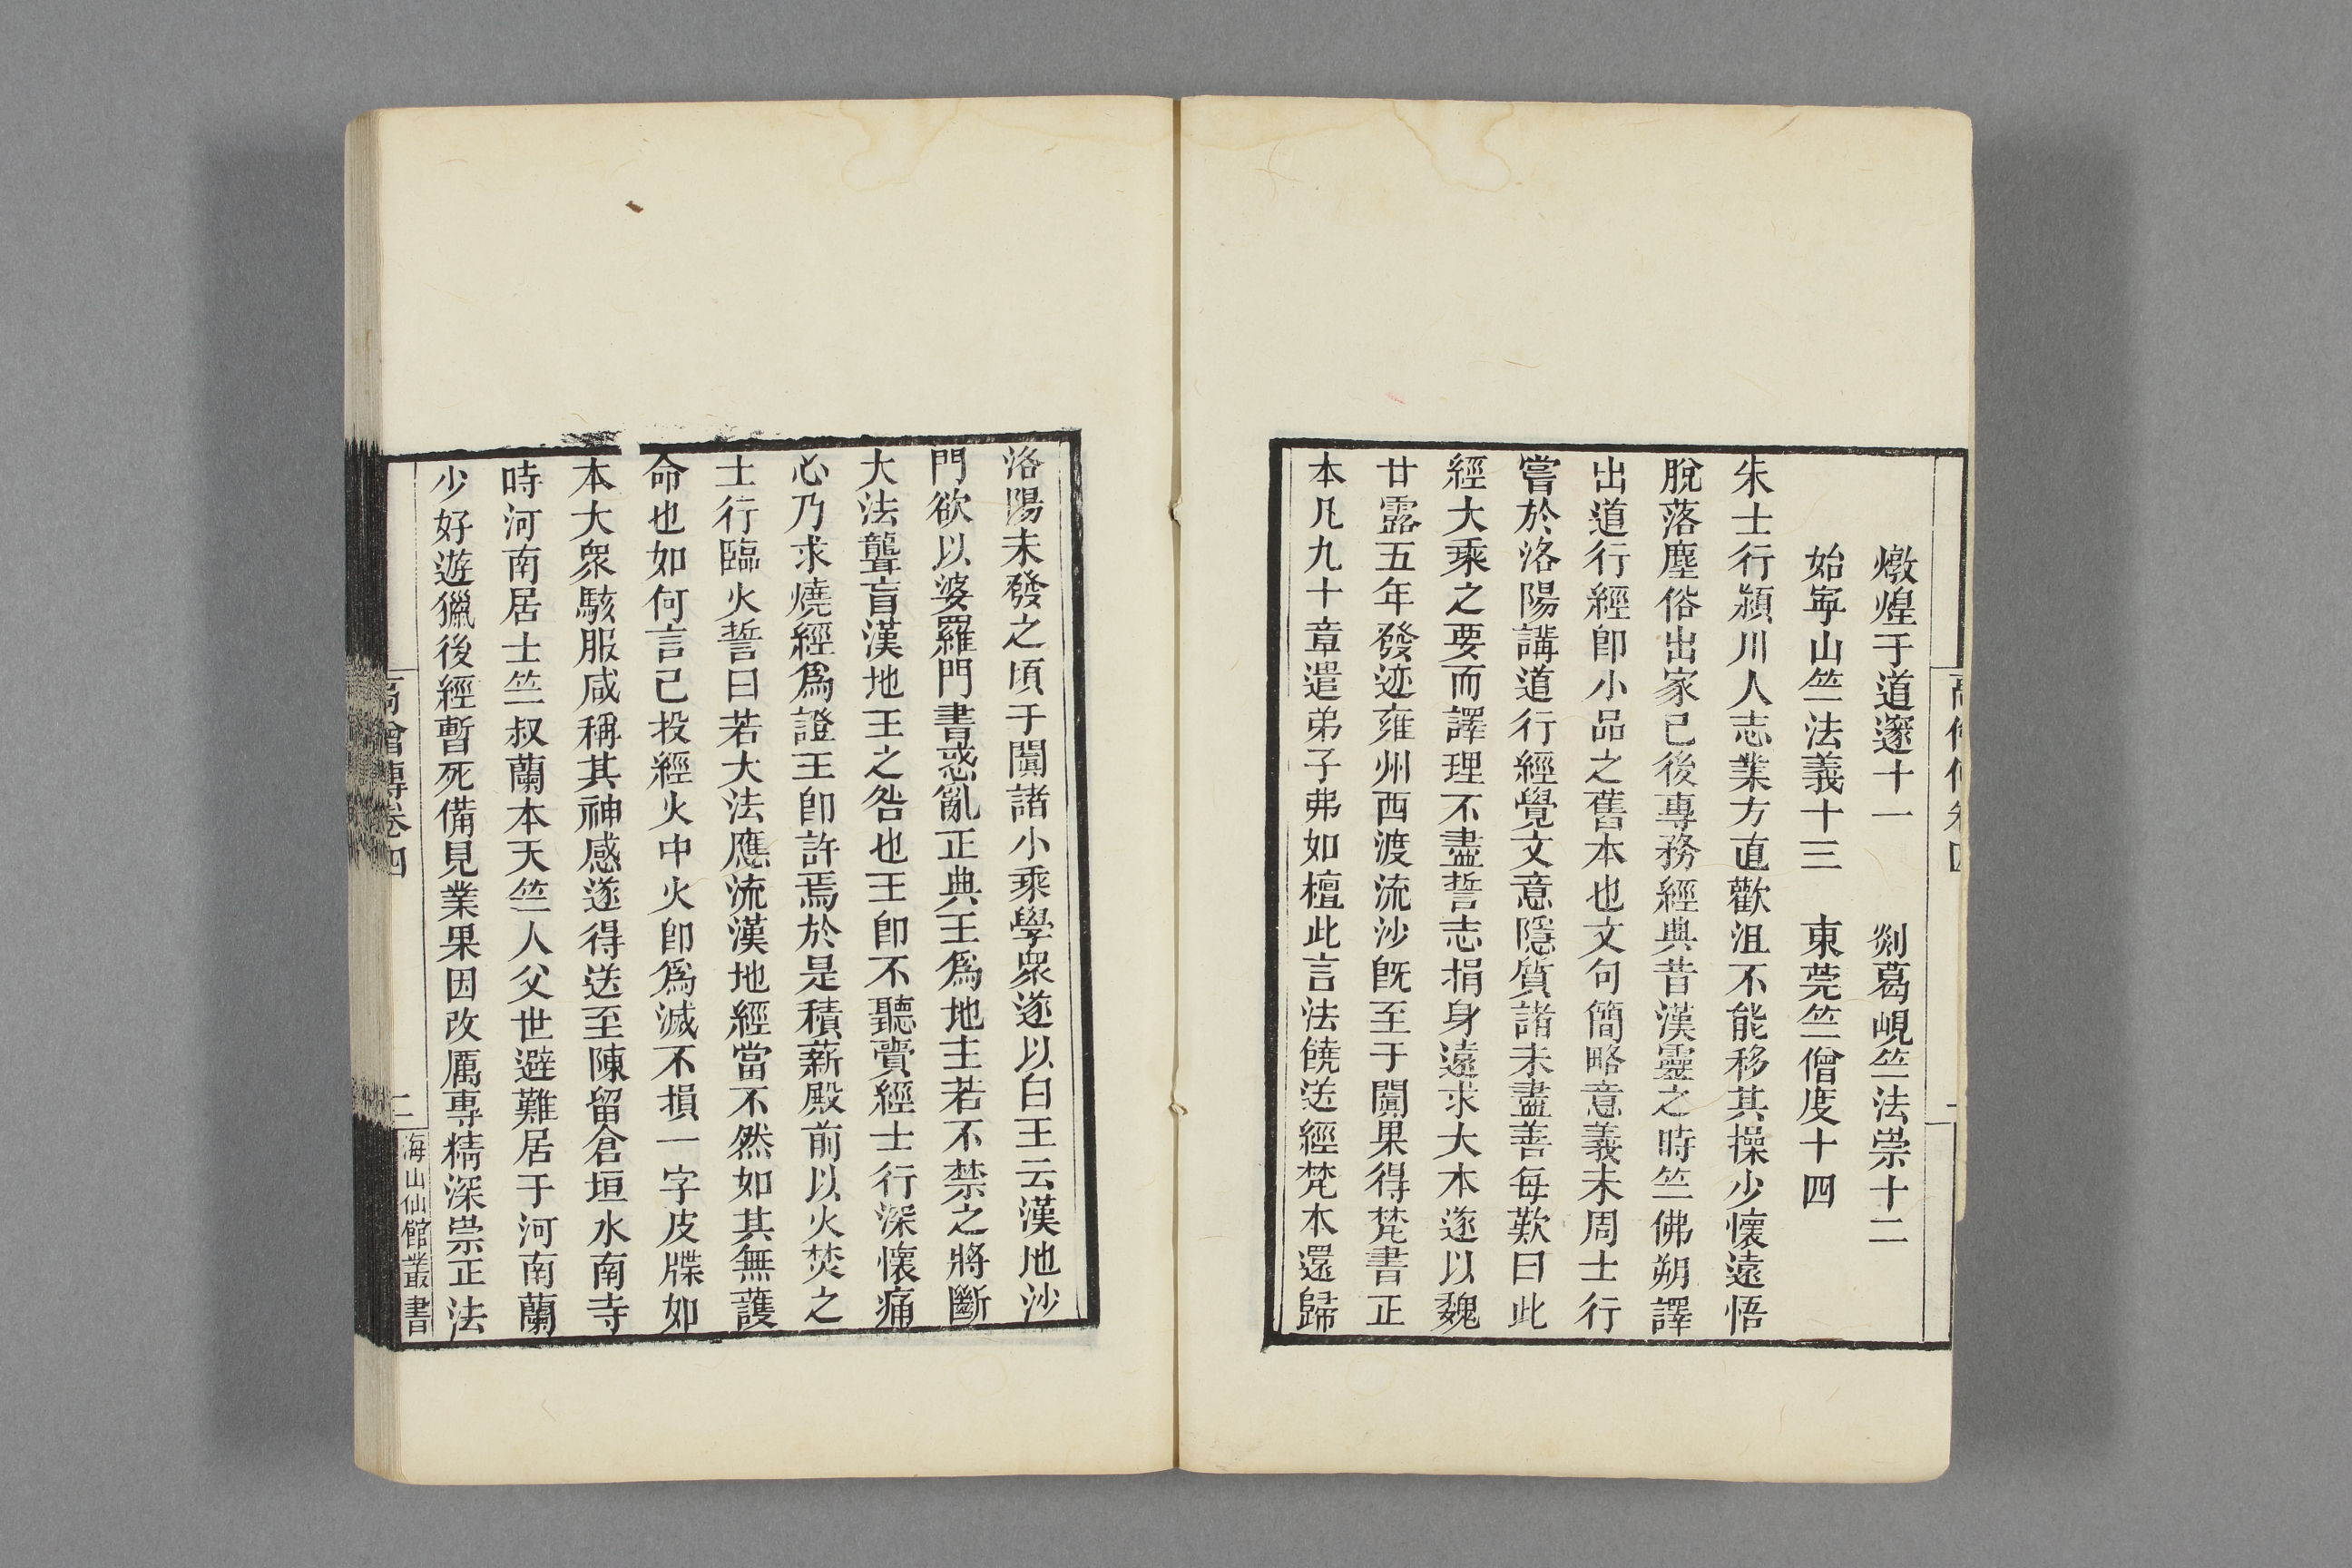 燉煌于道邃十一　剡葛峴竺法崇十二
始寧山竺法義十三　東莞竺僧度十四
朱士行潁川人志業方直歡沮不能移其操少懷遠悟
脫落塵俗出家已後專務經典昔漢靈之時竺佛朔譯
出道行經卽小品之舊本也文句簡略意義未周士行
嘗於洛陽講道行經覺文意隱質諸未盡善每歎曰此
經大乘之要而譯理不盡誓志捐身遠求大本遂以魏
甘露五年發迹雍州西渡流沙旣至于闐果得梵書正
本凡九十章遣弟子弗如檀此言法饒送經梵本還歸
洛陽未發之頃于闐諸小乘學衆遂以白王云漢地沙
門欲以婆羅門書惑亂正典王爲地主若不禁之將斷
大法聾盲漢地王之咎也王卽不聽賷經士行深懷痛
心乃求燒經爲證王卽許焉於是積薪殿前以火焚之
士行臨火誓曰若大法應流漢地經當不然如其無護
命也如何言已投經火中火卽爲滅不損一字皮牒如
本大衆駭服咸稱其神感遂得送至陳留倉垣水南寺
時河南居士竺叔蘭本天竺人父世避難居于河南蘭
少好遊獵後經暫死備見業果因改厲專精深崇正法
高僧傳卷四
二
海山仙館叢書